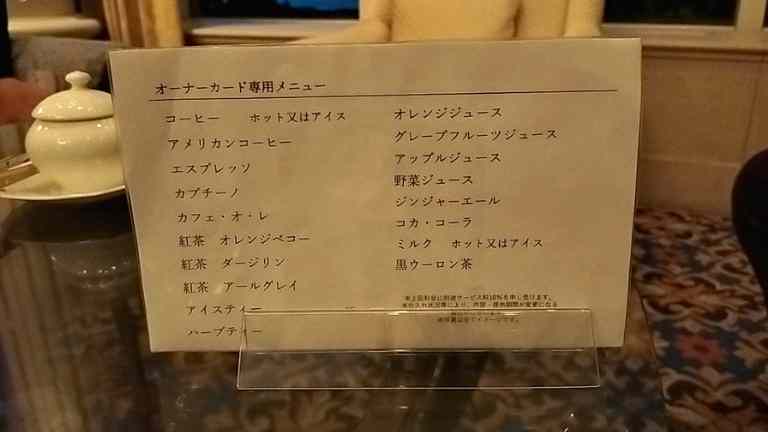 オーナーカード専用メニュー
コーヒー　ホット又はアイス
アメリカンコーヒー
エスプレッソ
カプチーノ
カフェ・オ・レ
紅茶　オレンジペコー
紅茶　ダージリン
紅茶　アールグレイ
アイスティー
ハーブティー
オレンジジュース
グレープフルーツジュース
アップルジュース
野菜ジュース
ジンジャーエール
コカ・コーラ
ミルク　ホット又はアイス
黒ウーロン茶
※上記料金に別途サービス料10%を申し受けます。
※仕入れ状況等により、内容・提供期間が変更になる